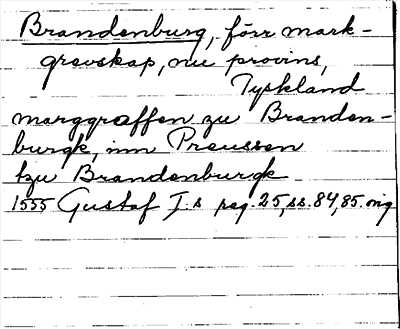 Brandenburg, förr mark-
grevskap, nu provins,
Tyskland
marggraffen zu Branden-
burgk, inn Preussen
tzu Brandenburgk
1555 Gustaf I.s reg. 25, ss. 84, 85. orig